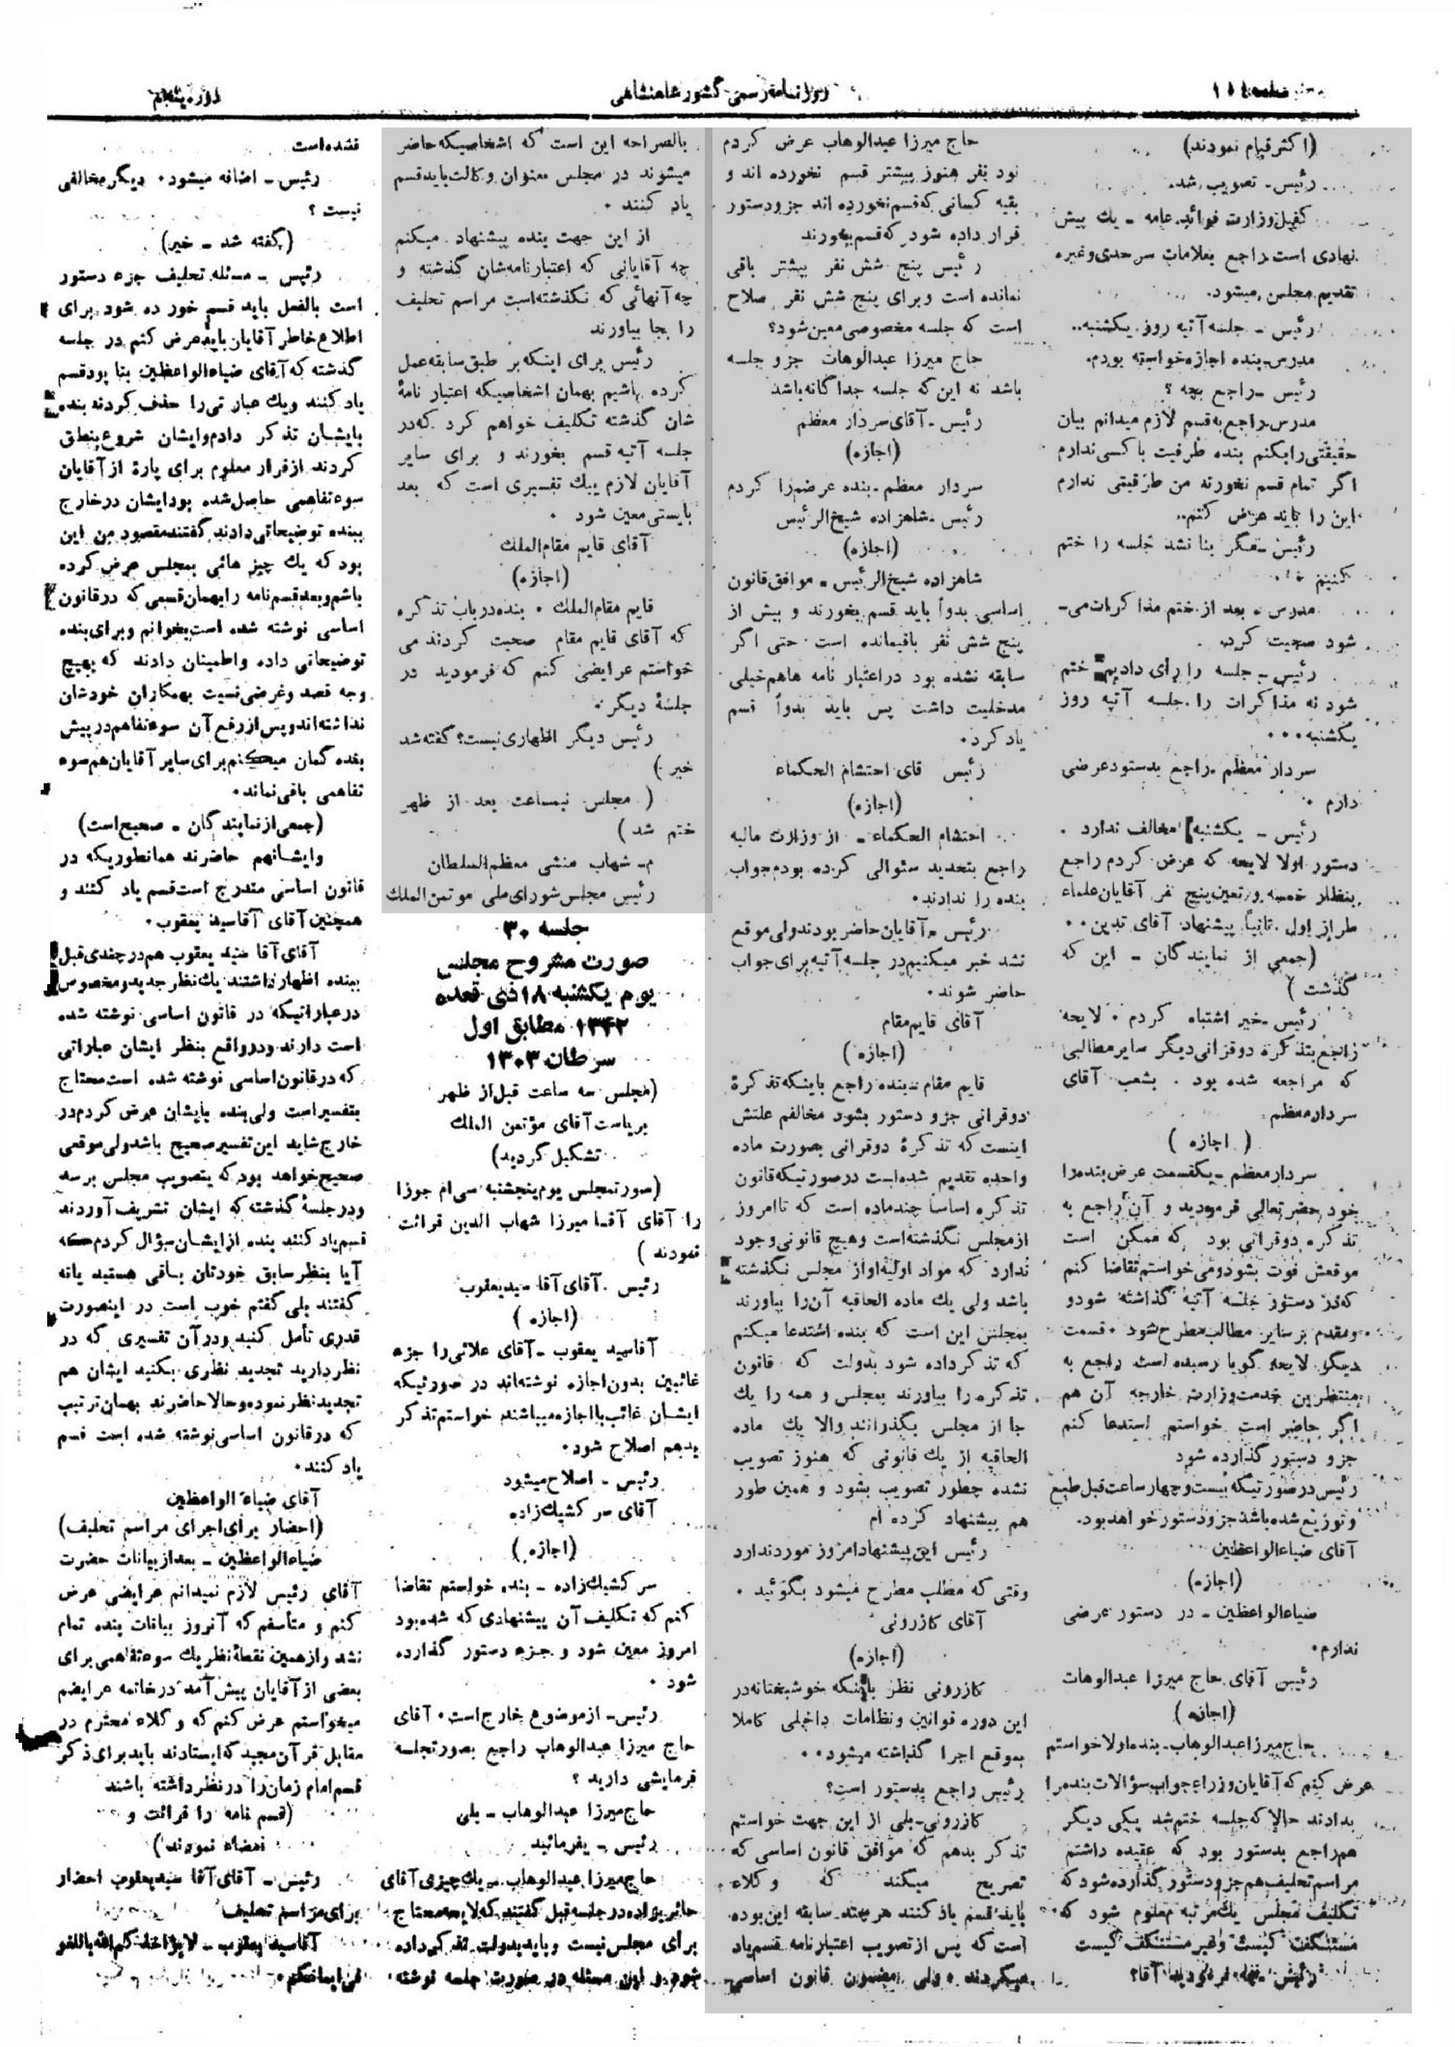 روزنامه رسمی کشور شاهنشاهی
(اکثر قیام نمودند)
رئیس ـ تصویب شد.
کفیل وزارت فوائد عامه ـ یك پیش
نهادی است راجع بعلامات سرحدی و غیره
تقدیم مجلس میشود.
رئیس ـ جلسه آتیه روز یکشنبه..
مدرس ـ بنده اجازه خواسته بودم.
رئیس ـ راجع بچه ؟
مدرس ـ راجع به قسم لازم میدانم بیان
حقیقتی را بکنم بنده طرفیت با کسی ندارم
اگر تمام قسم نخورند من طرفیتی ندارم
این را باید عرض کنم..
رئیس ـ مگر بنا نشد جلسه را ختم
کنیم
مدرس ـ بعد از ختم مذاکرات می-
شود صحبت کرد.
رئیس ـ جلسه را رأی دادیم ختم
شود نه مذاکرات را. جلسه آتیه روز
یکشنبه...
سردار معظم ـ راجع بدستور عرضی
دارم .
رئیس ـ یکشنبه مخالف ندارد .
دستور اولا لایحه که عرض کردم راجع
بنظار خمسه و تعیین پنج نفر آقایان علماء
طراز اول . ثانیاً پیشنهاد آقای تدین ..
(جمعی از نمایندگان ـ این که
گذشت )
رئیس ـ خیر اشتباه کردم . لایحه
راجع بتذکره دوقرانی دیگر سایر مطالبی
که مراجعه شده بود . بشعب آقای
سردار معظم
( اجازه )
سردار معظم ـ یکقسمت عرض بنده را
خود حضرتعالی فرمودید و آن راجع به
تذکره دوقرانی بود که ممکن است
موقعش فوت بشود و می خواستم تقاضا کنم
که در دستور جلسه آتیه گذاشته شود و
مقدم بر سایر مطالب مطرح شود . قسمت
دیگر لایحه گویا رسیده است راجع به
منتظرین خدمت وزارت خارجه آن هم
اگر حاضر است خواستم استدعا کنم
جزو دستور گذارده شود
رئیس در صورتیکه بیست و چهار ساعت قبل طبع
و توزیع شده باشد جزو دستور خواهد بود.
آقای ضیاءالواعظین
(اجازه)
ضیاءالواعظین ـ در دستور عرضی
ندارم.
رئیس آقای حاج میرزا عبدالوهاب
(اجازه)
حاج میرزا عبدالوهاب ـ بنده اولا خواستم
عرض کنم که آقایان وزراء جواب سؤالات بنده را
بدادند حالا که جلسه ختم شد یکی دیگر
هم راجع بدستور بود که عقیده داشتم
مراسم تحلیف هم جزو دستور گذارده شود که
تکلیف مجلس یك مرتبه معلوم شود که
مستنکف کیست و غیر مستنکف کیست
رئیس ـ چه فرمودید آقا؟
حاج میرزا عبدالوهاب عرض کردم
نود نفر هنوز بیشتر قسم نخورده اند و
بقیه کسانی که قسم نخورده اند جزو دستور
قرار داده شود که قسم بخورند
رئیس پنج شش نفر بیشتر باقی
نمانده است و برای پنج شش نفر صلاح
است که جلسه مخصوصی معین شود؟
حاج میرزا عبدالوهاب جزو جلسه
باشد نه این که جلسه جداگانه باشد
رئیس ـ آقای سردار معظم
(اجازه)
سردار معظم ـ بنده عرضم را کردم
رئیس ـ شاهزاده شیخ الرئیس
(اجازه)
شاهزاده شیخ الرئیس ـ موافق قانون
اساسی بدواً باید قسم بخورند و بیش از
پنج شش نفر باقیمانده است حتی اگر
سابقه نشده بود در اعتبار نامه ها هم خیلی
مدخلیت داشت پس باید بدواً قسم
یاد کرد.
رئیس قای احتشام الحکماء
(اجازه)
احتشام الحکماء ـ از وزارت مالیه
راجع بتحدید سئوالی کرده بودم جواب
بنده را ندادند.
رئیس ـ آقایان حاضر بودند ولی موقع
نشد خبر میکنیم در جلسه آتیه برای جواب
حاضر شوند.
آقای قایم مقام
(اجازه )
قایم مقام ـ بنده راجع باینکه تذکرۀ
دوقرانی جزو دستور بشود مخالفم علتش
اینست که تذکرۀ دوقرانی بصورت ماده
واحده تقدیم شده است در صورتیکه قانون
تذکره اساساً چند ماده است که تا امروز
از مجلس نگذشته است و هیچ قانونی وجود
ندارد که مواد اولیه او از مجلس نگذشته
باشد ولی یك ماده الحاقیه آن را بیاورند
بمجلس این است که بنده استدعا میکنم
که تذکر داده شود بدولت که قانون
تذکره را بیاورند بمجلس و همه را یك
جا از مجلس بگذرانند والا یك ماده
الحاقیه از یك قانونی که هنوز تصویب
نشده چطور تصویب بشود و همین طور
هم پیشنهاد کرده ام
رئیس این پیشنهاد امروز مورد ندارد
وقتی که مطلب مطرح میشود بگوئید .
آقای کازرونی
(اجازه)
کازرونی نظر باینکه خوشبختانه در
این دوره قوانین و نظامات داخلی کاملا
بموقع اجرا گذاشته میشود..
رئیس راجع بدستور است؟
کازرونی ـ بلی از این جهت خواستم
تذکر بدهم که موافق قانون اساسی که
تصریح میکند که وکلاء
باید قسم یاد کنند هر چند سابقه این بوده
است که پس از تصویب اعتبارنامه قسم یاد
میکردند ولی مضمون قانون اساسی
بالصراحه این است که اشخاصیکه حاضر
میشوند در مجلس بعنوان وکالت باید قسم
یاد کنند .
از این جهت بنده پیشنهاد میکنم
چه آقایانی که اعتبارنامه شان گذشته و
چه آنهائی که نگذشته است مراسم تحلیف
را بجا بیاورند
رئیس برای اینکه بر طبق سابقه عمل
کرده باشیم بهمان اشخاصیکه اعتبار نامۀ
شان گذشته تکلیف خواهم کرد که در
جلسه آتیه قسم بخورند و برای سایر
آقایان لازم بیك تفسیری است که بعد
بایستی معین شود .
آقای قایم مقام الملك
(اجازه)
قایم مقام الملك . بنده در باب تذکره
که آقای قایم مقام صحبت کردند می
خواستم عرایضی کنم که فرمودید در
جلسۀ دیگر.
رئیس دیگر اظهاری نیست؟ گفته شد
خیر )
( مجلس نیمساعت بعد از ظهر
ختم شد )
م ـ شهاب منشی معظم السلطان
رئیس مجلس شورای ملی موتمن الملك
جلسه ۳۰
صورت مشروح مجلس
یوم یکشنبه ۱۸ ذی قعده
۱۳۴۲ مطابق اول
سرطان ۱۳۰۳
(مجلس سه ساعت قبل از ظهر
بریاست آقای مؤتمن الملك
تشکیل گردید)
(صورتمجلس یوم پنجشنبه سی ام جوزا
را آقای آقا میرزا شهاب الدین قرائت
نمودند )
رئیس . آقای آقا سید یعقوب
(اجازه )
آقا سید یعقوب ـ آقای علائی را جزء
غائبین بدون اجازه نوشته اند در صورتیکه
ایشان غائب با اجازه میباشند خواستم تذکر
بدهم اصلاح شود.
رئیس ـ اصلاح میشود
آقای سر کشیك زاده
(اجازه )
سر کشیك زاده ـ بنده خواستم تقاضا
کنم که تکلیف آن پیشنهادی که شده بود
امروز معین شود و جزء دستور گذارده
شود .
رئیس ـ از موضوع خارج است . آقای
حاج میرزا عبدالوهاب راجع بصورتجلسه
فرمایشی دارید ؟
حاج میرزا عبدالوهاب ـ بلی
رئیس ـ بفرمائید
حاج میرزا عبدالوهاب ـ یك چیزی آقای
حائری زاده در جلسه قبل گفتند که لایحه محتاج
برأی مجلس نیست و باید بدولت تذکر داده
شود و این مسئله در صورت جلسه نوشته
نشده است
رئیس ـ اضافه میشود . دیگر مخالفی
نیست ؟
(گفته شد ـ خیر)
رئیس ـ مسئله تحلیف جزء دستور
است بالفعل باید قسم خورده شود برای
اطلاع خاطر آقایان باید عرض کنم در جلسه
گذشته که آقای ضیاءالواعظین بنا بود قسم
یاد کنند و یك عبارتی را حذف کردند بنده
بایشان تذکر دادم و ایشان شروع بنطق
کردند از قرار معلوم برای پارۀ از آقایان
سوء تفاهمی حاصل شده بود ایشان در خارج
ببنده توضیحاتی دادند گفتند مقصود من این
بود که یك چیز هائی بمجلس عرض کرده
باشم و بعد قسم نامه را بهمان قسمی که در قانون
اساسی نوشته شده است بخوانم و برای بنده
توضیحاتی داده و اطمینان دادند که بهیچ
وجه قصد و غرضی نسبت بهمکاران خودشان
نداشته اند و پس از رفع آن سوء تفاهم در پیش
بنده گمان میکنم برای سایر آقایان هم سوء
تفاهمی باقی نماند.
(جمعی از نمایندگان ـ صحیح است)
و ایشان هم حاضرند همانطوریکه در
قانون اساسی مندرج است قسم یاد کنند و
همچنین آقای آقا سید یعقوب.
آقای آقا سید یعقوب هم در چندی قبل
ببنده اظهار داشتند یك نظر جدید و مخصوص
در عباراتیکه در قانون اساسی نوشته شده
است دارند و در واقع بنظر ایشان عباراتی
که در قانون اساسی نوشته شده است محتاج
بتفسیر است ولی بنده بایشان عرض کردم در
خارج شاید این تفسیر صحیح باشد ولی موقعی
صحیح خواهد بود که بتصویب مجلس برسد
و در جلسۀ گذشته که ایشان تشریف آوردند
قسم یاد کنند بنده از ایشان سؤال کردم که
آیا بنظر سابق خودتان باقی هستید یا نه
گفتند بلی گفتم خوب است در اینصورت
قدری تأمل کنید و در آن تفسیری که در
نظر دارید تجدید نظری بکنید ایشان هم
تجدید نظر نموده و حالا حاضرند بهمان ترتیب
که در قانون اساسی نوشته شده است قسم
یاد کنند.
آقای ضیاءالواعظین
(احضار برای اجرای مراسم تحلیف)
ضیاءالواعظین ـ بعد از بیانات حضرت
آقای رئیس لازم نمیدانم عرایضی عرض
کنم و متأسفم که آنروز بیانات بنده تمام
نشد و از همین نقطۀ نظر یك سوء تفاهمی برای
بعضی از آقایان پیش آمد در خاتمه عرایضم
میخواستم عرض کنم که وکلاء محترم در
مقابل قرآن مجید که ایستادند باید برای ذکر
قسم امام زمان را در نظر داشته باشند
(قسم نامه را قرائت و
امضاء نمودند)
رئیس ـ آقای آقا سید یعقوب احضار
برای مراسم تحلیف
آقا سید یعقوب ـ لایؤاخذکم الله باللغو
فی ایمانکم.